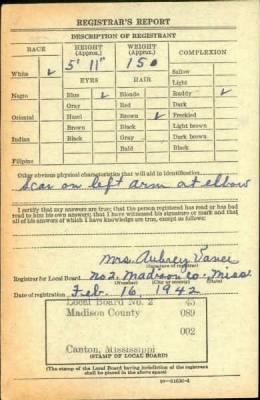 REGISTRAR'S REPORT
DESCRIPTION OF REGISTRANT
RACE HEIGHT (Approx.) WEIGHT (Approx.) COMPLEXION
5' 11" 150
White ✓ Sallow
EYES HAIR Light
Negro Blue ✓ Blonde Ruddy ✓
Gray Red Dark
Oriental Hazel Brown ✓ Freckled
Brown Black Light brown
Indian Black Gray Dark brown
Bald Black
Filipino
Other obvious physical characteristics that will aid in identification
Scar on left arm at elbow
I certify that my answers are true; that the person registered has read or has had
read to him his own answers; that I have witnessed his signature or mark and that
all of his answers of which I have knowledge are true, except as follows:
Mrs. Aubrey Vance
(Signature of registrar)
Registrar for Local Board No 2. Madison Co. Miss.
(Number) (City or county) (State)
Date of registration Feb. 16, 1942
Local Board No. 2 45
Madison County 089
002
Canton, Mississippi
(STAMP OF LOCAL BOARD)
(The stamp of the Local Board having jurisdiction of the registrant
shall be placed in the above space)